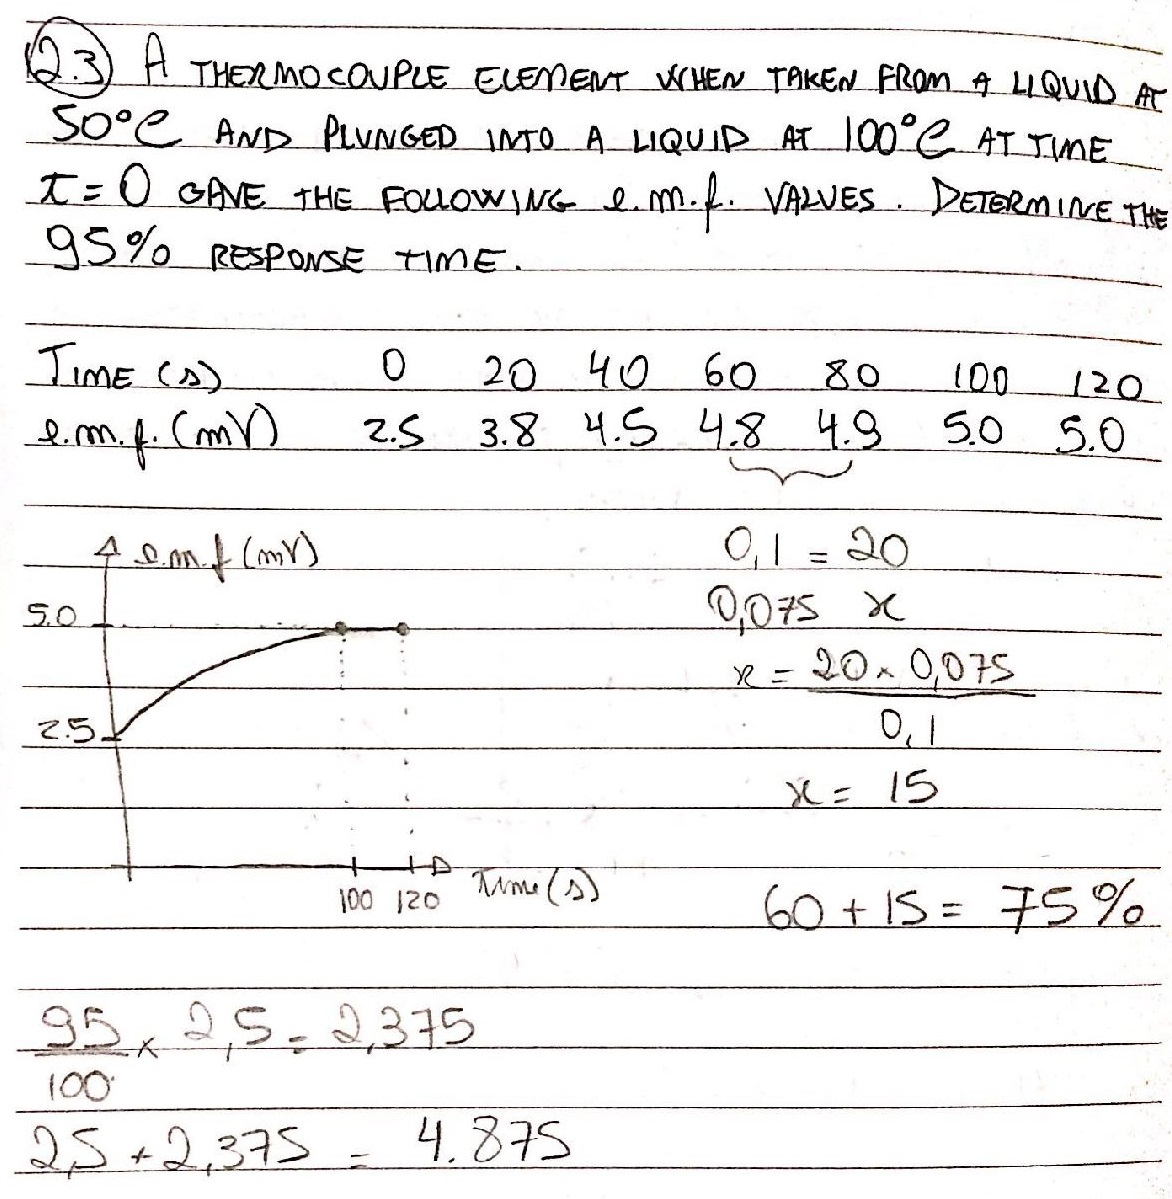 Q.3) A THERMOCOUPLE ELEMENT WHEN TAKEN FROM A LIQUID AT
50°C AND PLUNGED INTO A LIQUID AT 100°C AT TIME
t=0 GAVE THE FOLLOWING e.m.f. VALUES. DETERMINE THE
95% RESPONSE TIME.
TIME (s) 0 20 40 60 80 100 120
e.m.f. (mV) 2.5 3.8 4.5 4.8 4.9 5.0 5.0
e.m.f (mV)
5.0
2.5
100 120 Time (s)
0,1 = 20
0,075 x
x = 20 × 0,075
0,1
x = 15
60 + 15 = 75%
95 × 2,5 = 2,375
100
2,5 + 2,375 = 4.875